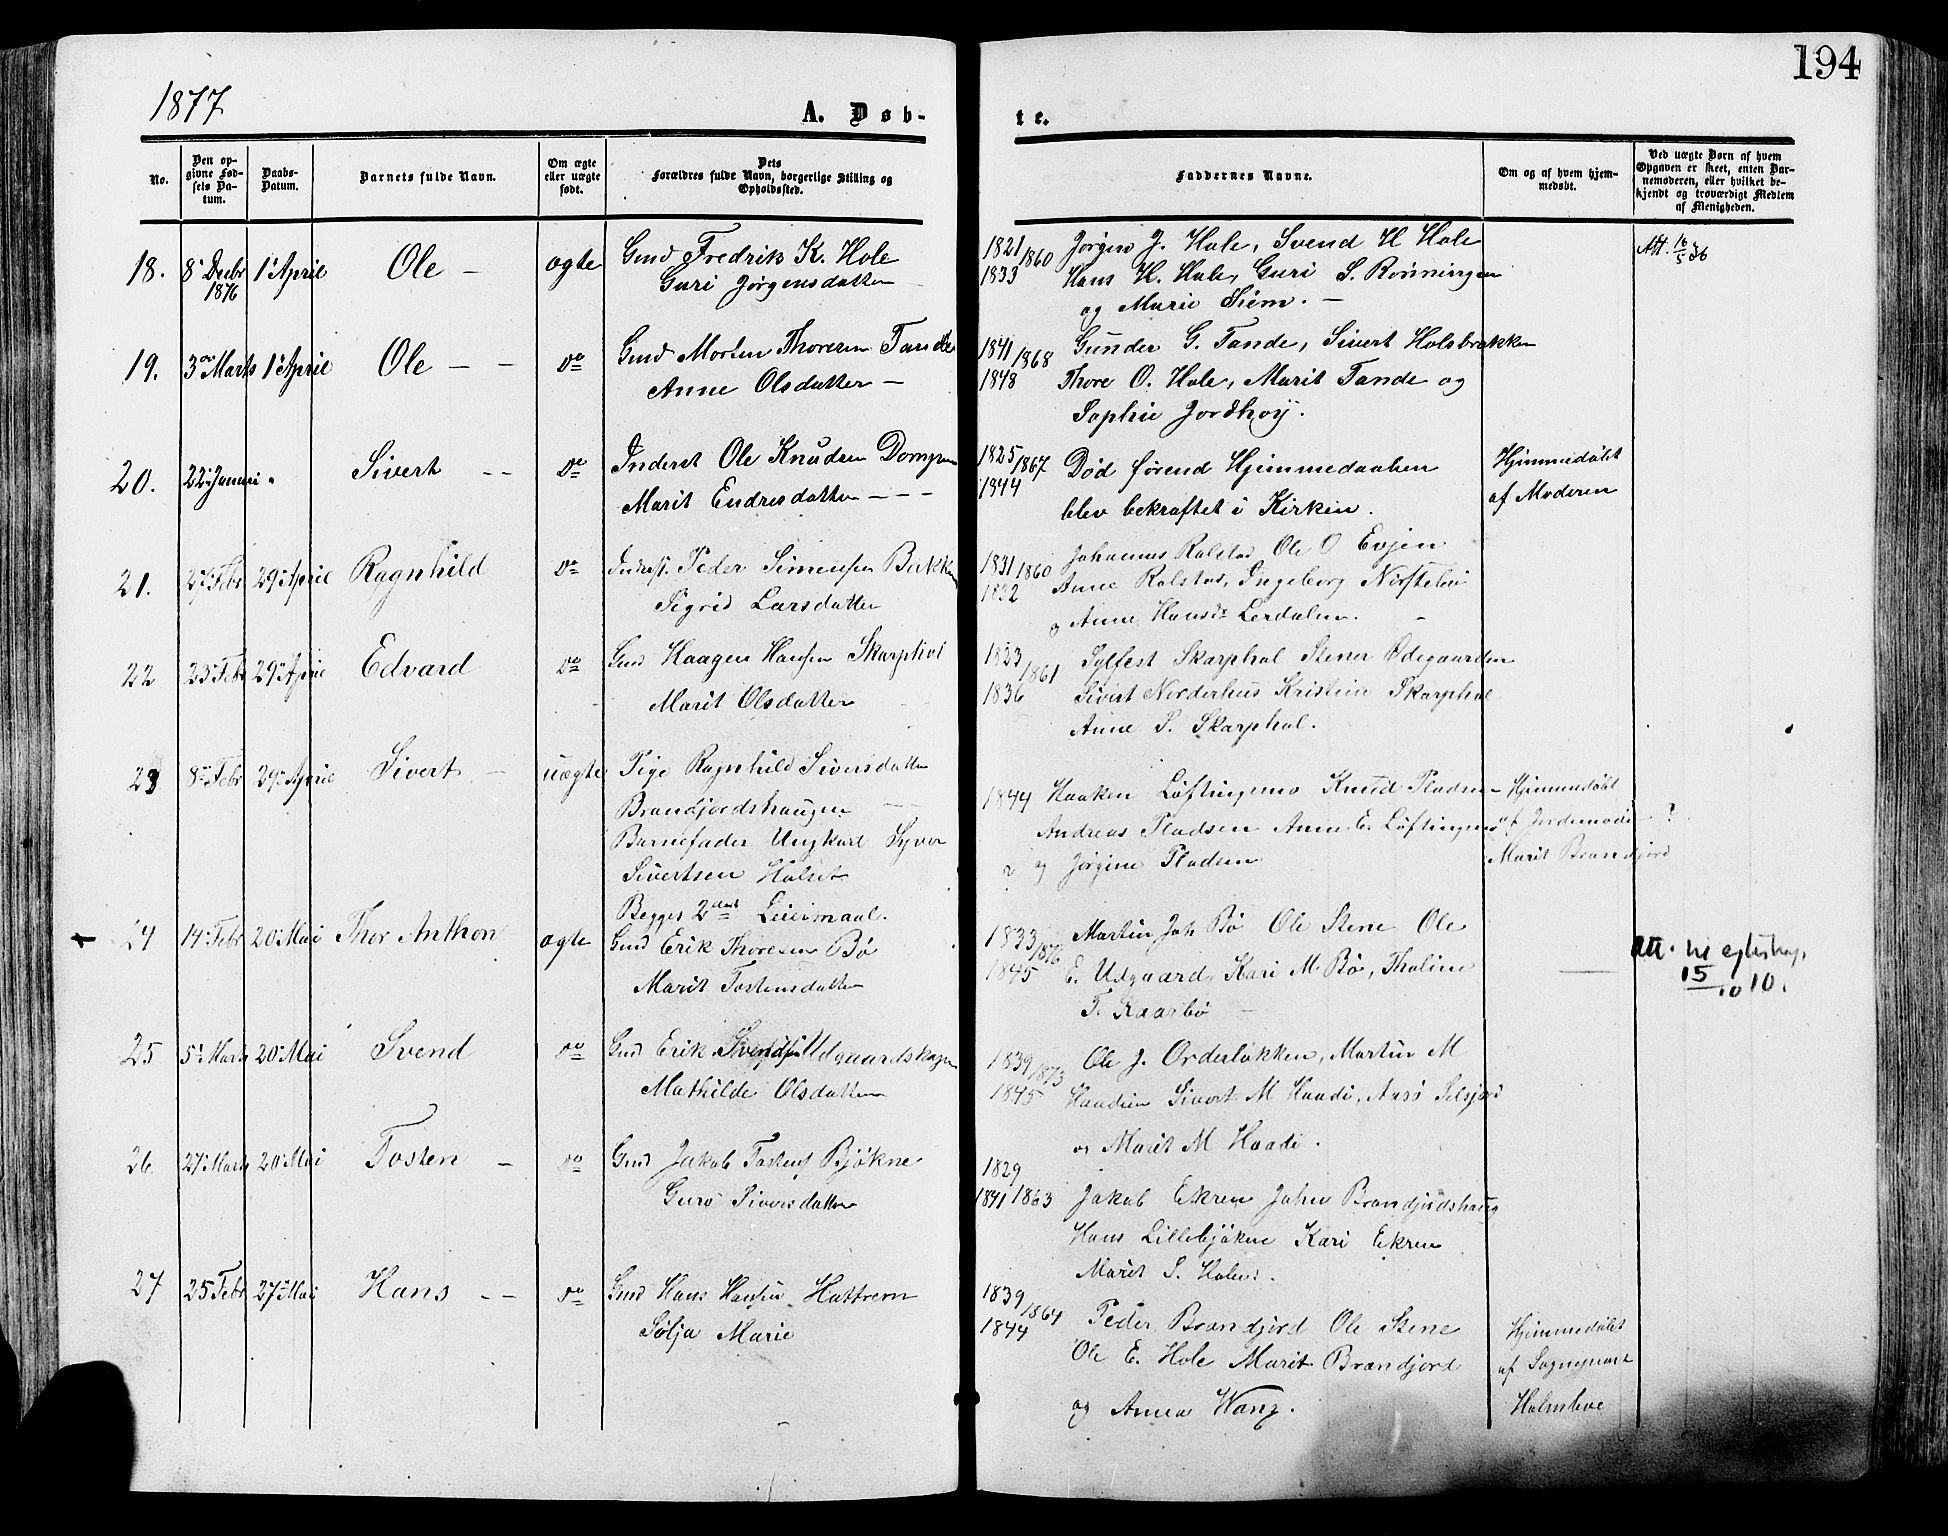 194
1877
A. Døb-
te.
No.
Den op-
givne Fød-
sels Da-
tum.
Daabs-
Datum.
Barnets fulde Navn.
Om ægte
eller uægte
født.
Dets
Forældres fulde Navn, borgerlige Stilling og
Opholdssted.
Faddernes Navne.
Om og af hvem hjem-
medøbt.
Ved uægte Børn af hvem
Opgaven er skeet, enten Bar-
nemoderen, eller hvilket be-
kjendt og troværdigt Medlem
af Menigheden.
18. 8de Decbr 1ste April Ole – ægte Gmd Fredrik K. Hole
1876
Guri Jørgensdatter
1821
1860
1833
Jørgen J. Hole, Svend H Hole
Hans H. Hole, Guri S. Rønningen
og Marie Siem. –
Att. 16/5 36
19. 3die Marts 1ste April Ole – – do Gmd Morten Thoresen Tande
Anne Olsdatter –
1841
1868
1848
Gunder G. Tande, Sivert Holsbrekken
Thore O. Hole, Marit Tande og
Sophie Jordhøy.
20. 22de Januar " Sivert – – do Inderst Ole Knudsen Dompen
Marit Endresdatter – – –
1825
1867
1844
Død førend Hjemmedaaben
blev bekræftet i Kirken.
Hjemmedøbt
af Moderen
21. 27 Febr 29 April Ragnhild do Inderst. Peder Simensen Bakken
Sigrid Larsdatter
1831
1860
1832
Johannes Rolstad Ole O Evjen
Anne Rolstad, Ingeborg
og Anne Hansdr Lerdalen.
22 23 Febr 29 April Edvard do Gmd Haagen Hansen Skarphol
Marit Olsdatter
1823
1861
1836
Sylfest Skarphol Stener Ødegaarden
Sivert Norderhus Kristine Skarphol
Anne S. Skarphol.
23 8de Febr 29 April Sivert – uægte Pige Ragnhild Siversdatter
Brandjordshaugen – –
Barnefader Ungkarl Syver
Sivertsen Holset
Begges 2det Leiermaal.
1844
?
Haaken Løftingsmo Knud Pladsen
Andreas Pladsen Anne E. Løftingsmo
og Jørgine Pladsen
Hjemmedøbt
af Jordemoder
Marit Brandjord
?
24 14 Febr 20 Mai Thor Anthon ægte Gmd Erik Thoresen Bø
Marit Tostensdatter
1833
1876
1845
Martin Joh Bø Ole Stene Ole
E. Udgaard, Kari M. Bø, Thaline
T. Kaarbø –
Att. til egteskap
15/10 10.
25 5te Marts 20 Mai Svend do Gmd Erik Svendsen Udgaardshagen
Mathilde Olsdatter
1839
1873
1845
Ole J. Orderløkken, Martin M
Haadien Sivert M Haadi, Selsjord
og Marit M Haadi.
26. 27 Marts 20 Mai Tosten – do Gmd Jakob Tostens Bjøkne
Guro Siversdatter
1829
1841 1863
Jakob Ekren John Brandjordshaug
Hans Lillebjøkne Kari Ekren
Marit S.
27 25 Febr 27 Mai Hans – – do Gmd Hans Hansen Hattrem
Sølja Marie
1839
1864
1844
Peder Brandjord Ole Stene
Ole E. Hole Marit Brandjord
og Anna Wang.
Hjemmedøbt
af Sogneprest